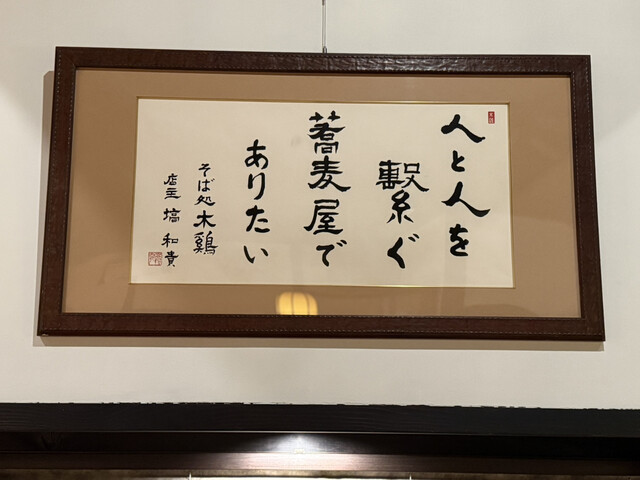 人と人を
繋ぐ
蕎麦屋で
ありたい
そば処 木鶏
店主 塙 和貴